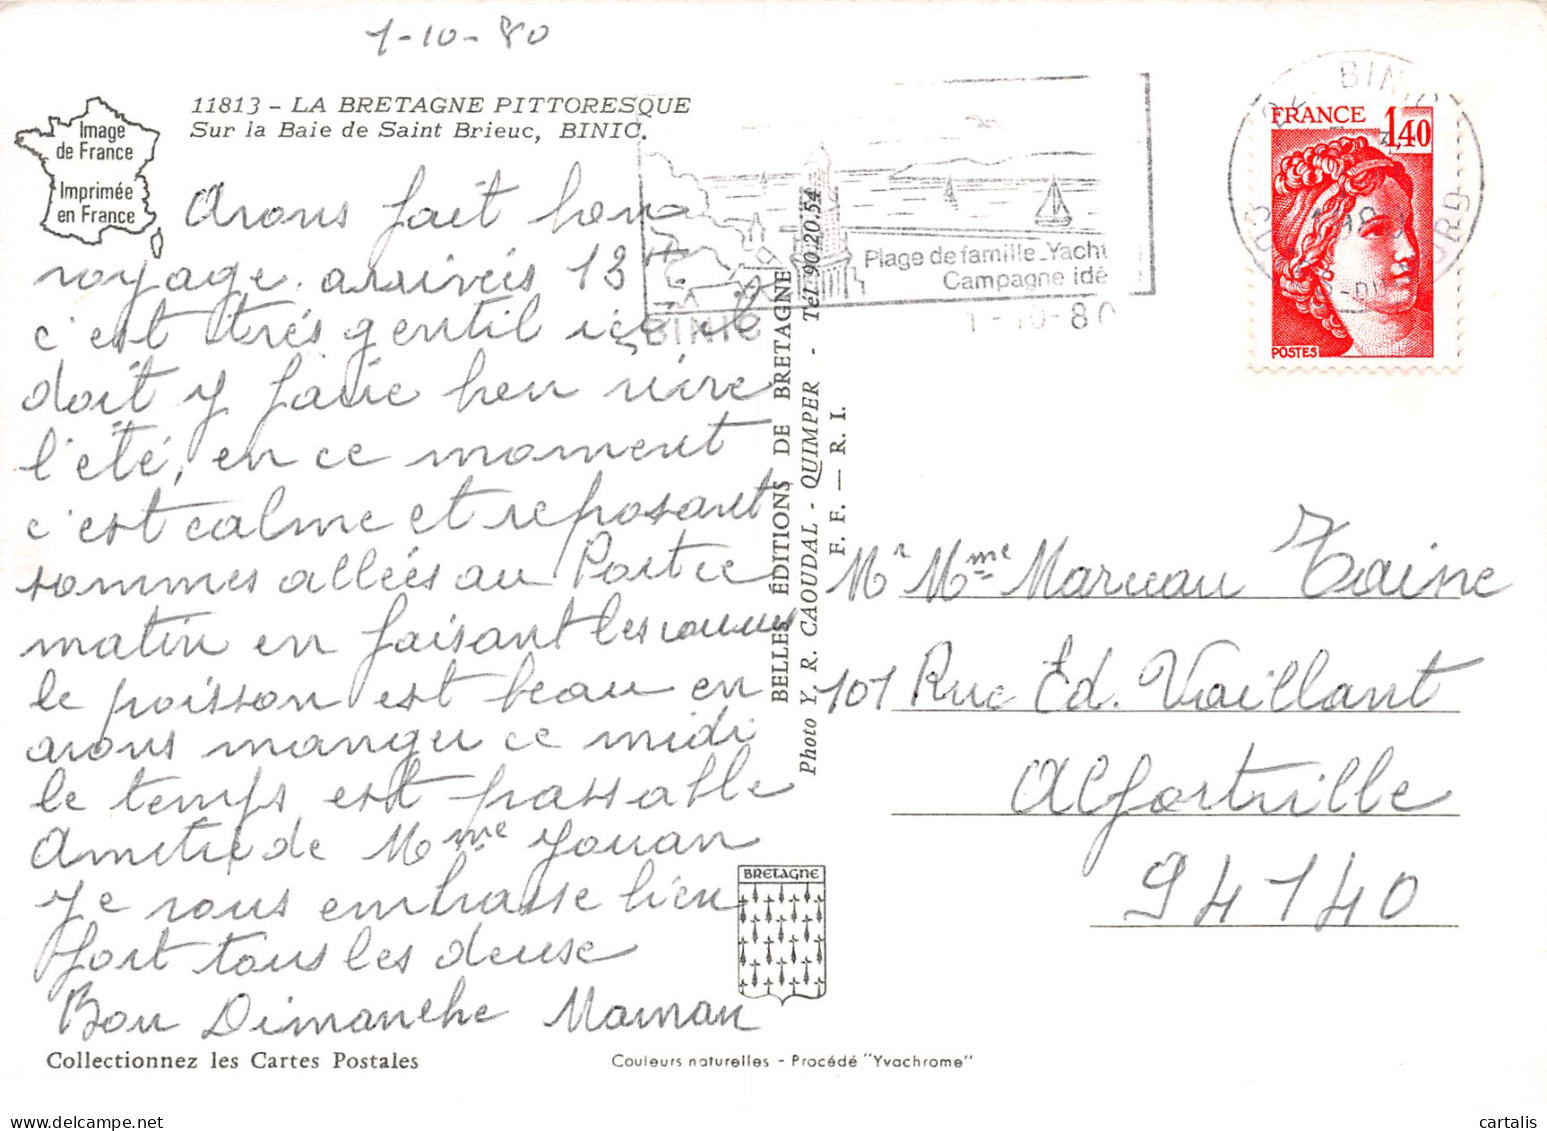 1-10-80
11813 - LA BRETAGNE PITTORESQUE
Sur la Baie de Saint Brieuc, BINIC.
Image
de France
Imprimée
en France
Avons fait bon
voyage. arrivéis 13H
c'est très gentil ici il
doit y faire bon vivre
l'été, en ce moment
c'est calme et reposant
sommes allées au Port ce
matin en faisant les courses
le poisson est beau en
avons mangé ce midi
le temps est passable
Amitié de Mme Jouan
Je vous embrasse bien
fort tous les deuse
Bon Dimanche Maman
Collectionnez les Cartes Postales
BELLES ÉDITIONS DE BRETAGNE
Photo Y. R. CAOUDAL - QUIMPER - Tél. 90.20.54
F. F. — R. I.
Plage de famille_Yacht
Campagne idé
BINIC
1-10-80
BINIC
FRANCE 1,40
POSTES
Mr Mme Taine
101 Rue Ed. Vaillant
Alfortville
94140
BRETAGNE
Couleurs naturelles - Procédé "Yvachrome"
cartalis